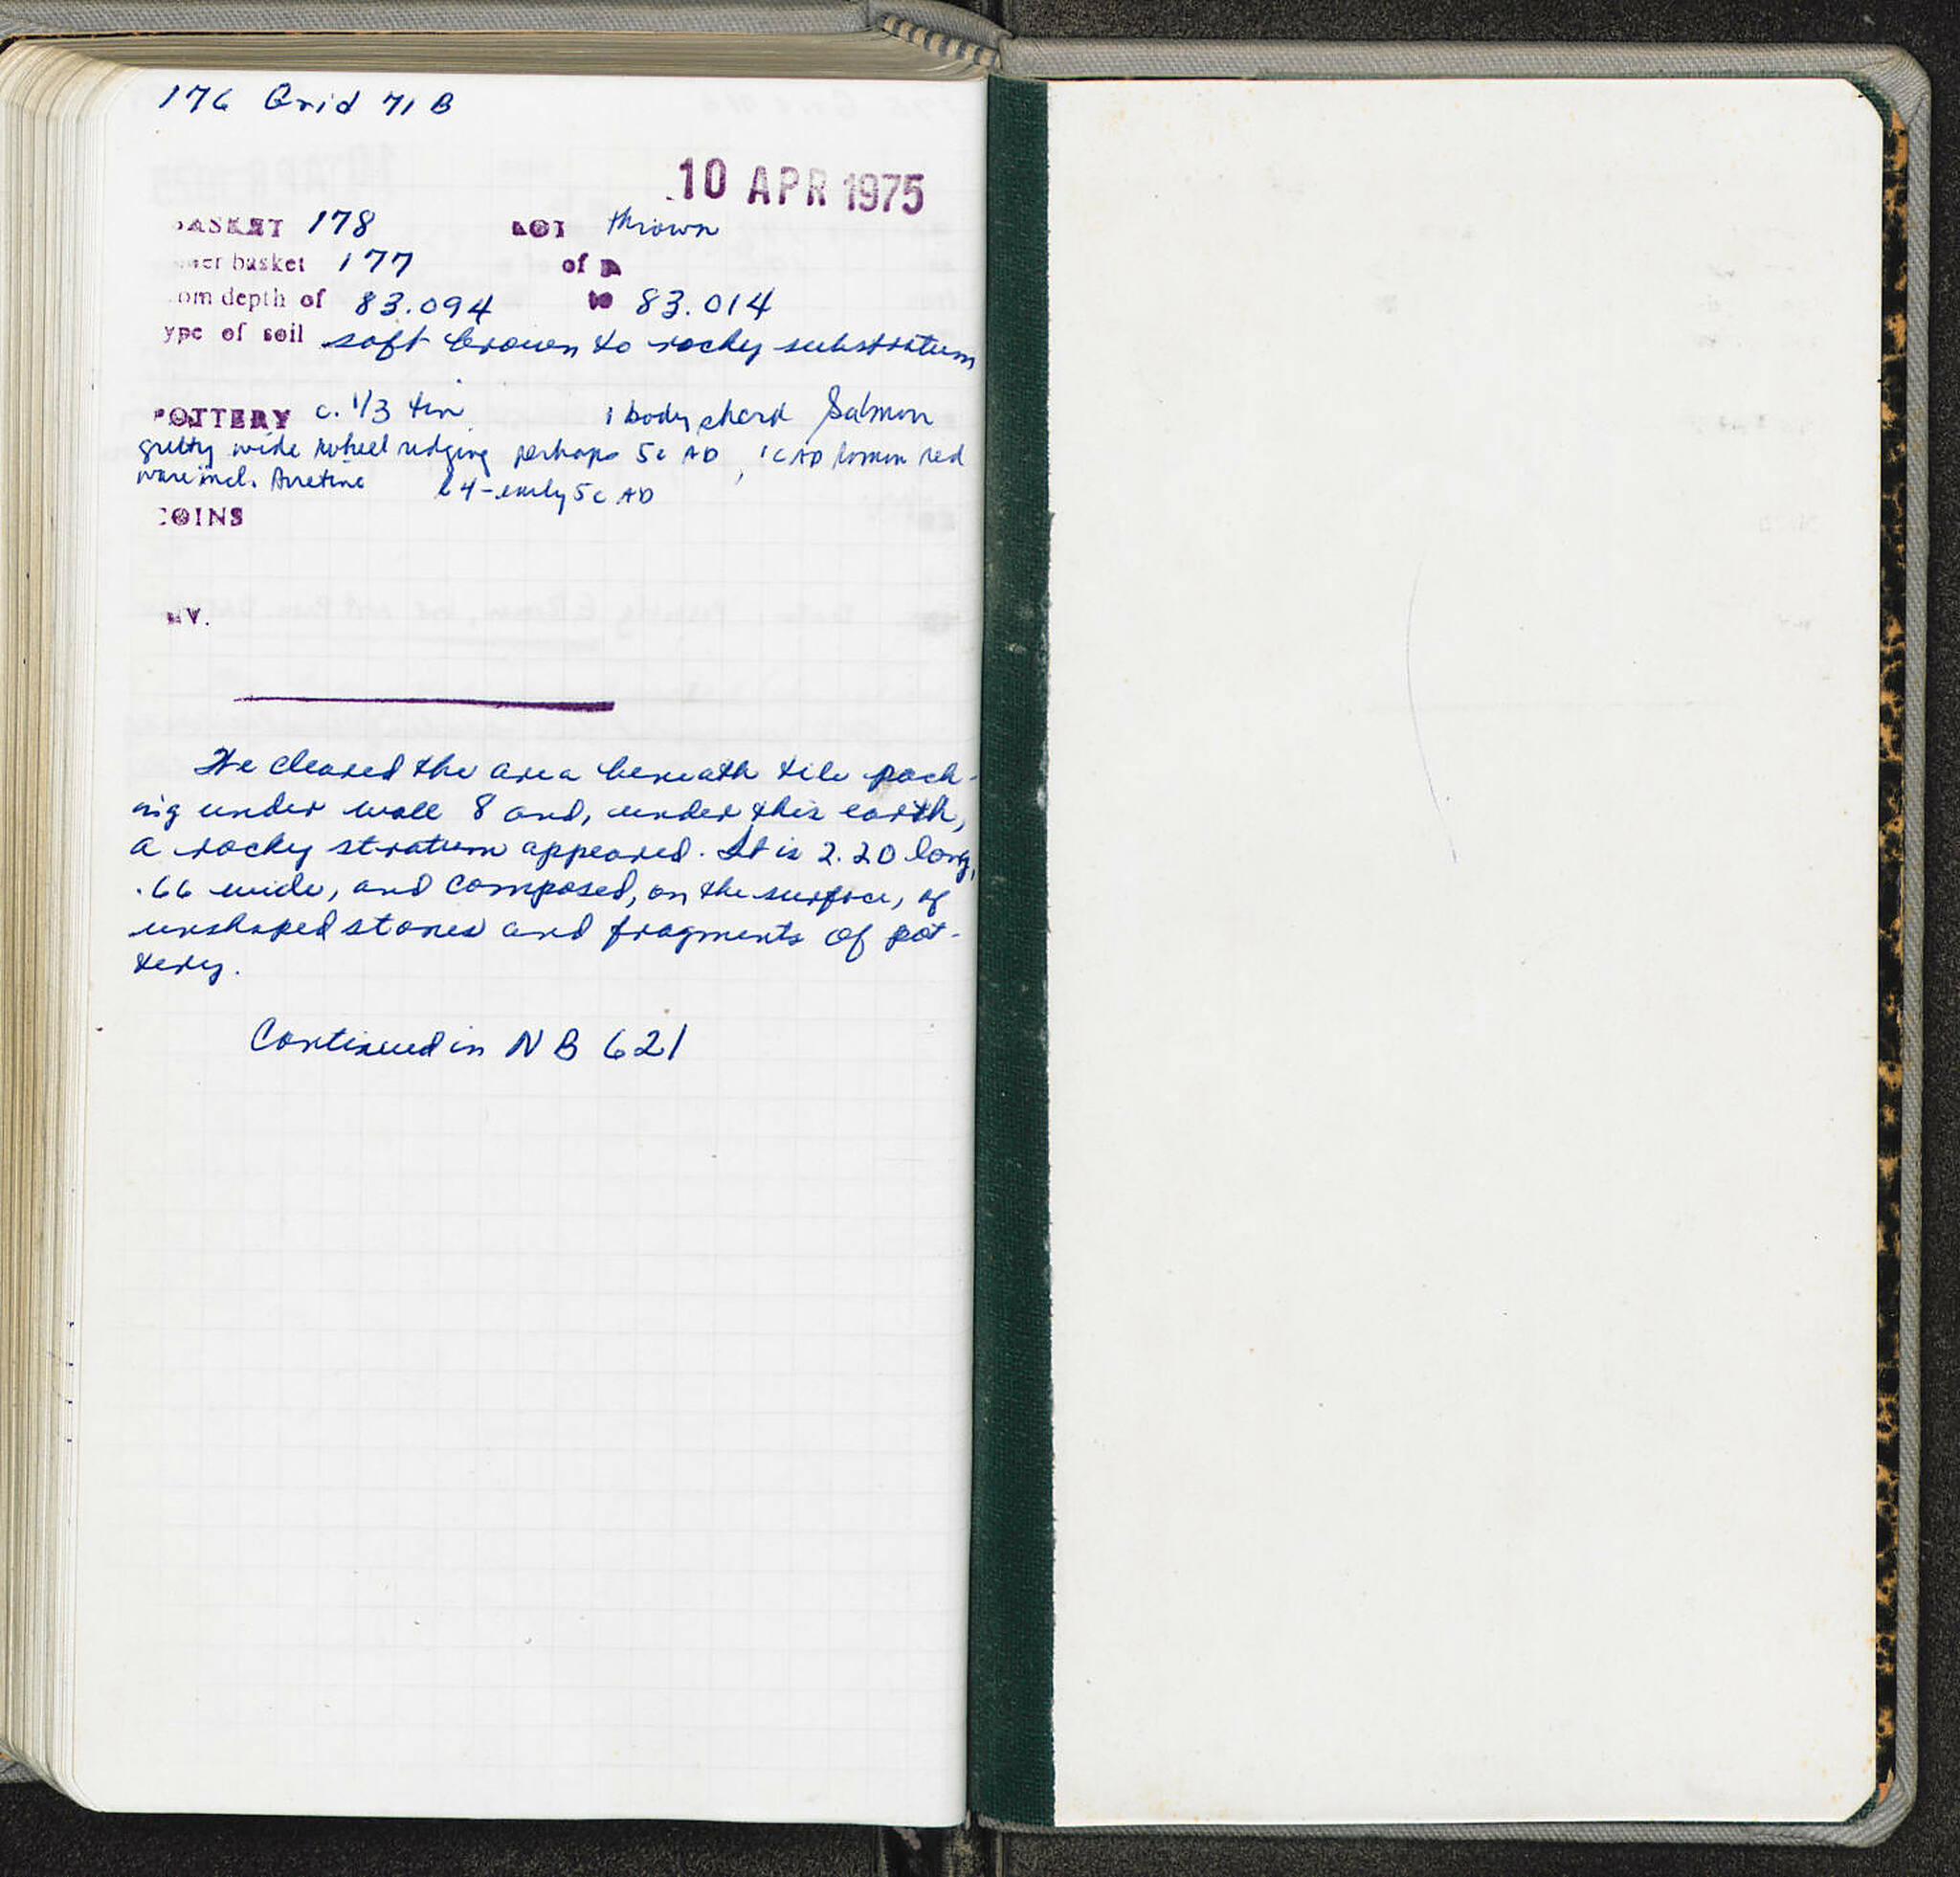 176 Grid 71 B
10 APR 1975
BASKET 178 LOT thrown
under basket 177 of
from depth of 83.094 to 83.014
type of soil soft brown to rocky substratum
POTTERY c. 1/3 tin 1 body sherd Salmon
gritty wide wheel ridging perhaps 5c AD, 1c AD Roman red
ware incl. Arretine L4-early 5c AD
COINS
INV.
We cleared the area beneath tile pack-
ing under wall 8 and, under this earth,
a rocky stratum appeared. It is 2.20 long,
.66 wide, and composed, on the surface, of
unshaped stones and fragments of pot-
tery.
Continued in NB 621